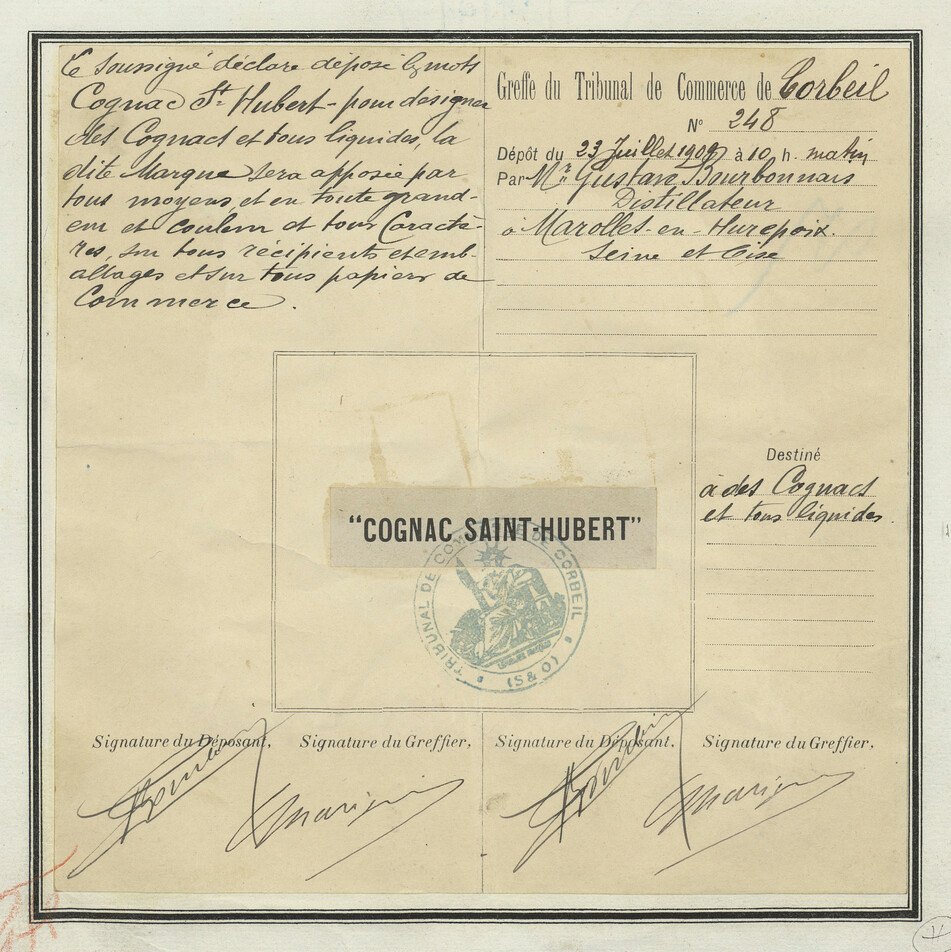 Le soussigné déclare déposé les mots
Cognac St. Hubert - pour désigner
des Cognacs et tous liquides, la
dite Marque sera apposée par
tous moyens, et en toute grand-
eur et couleur et tous Caractè-
res, sur tous récipients et emb-
allages et sur tous papiers de
Commerce.
Greffe du Tribunal de Commerce de Corbeil
N° 248
Dépôt du 23 Juillet 1909 à 10 h. matin
Par Mr. Gustave Bourbonnais
Distillateur
à Marolles-en-Hurepoix.
Seine et Oise
Destiné
à des Cognacs
et tous liquides.
"COGNAC SAINT-HUBERT"
TRIBUNAL DE COMMERCE DE CORBEIL
(S & O)
Signature du Déposant, Signature du Greffier, Signature du Déposant. Signature du Greffier,